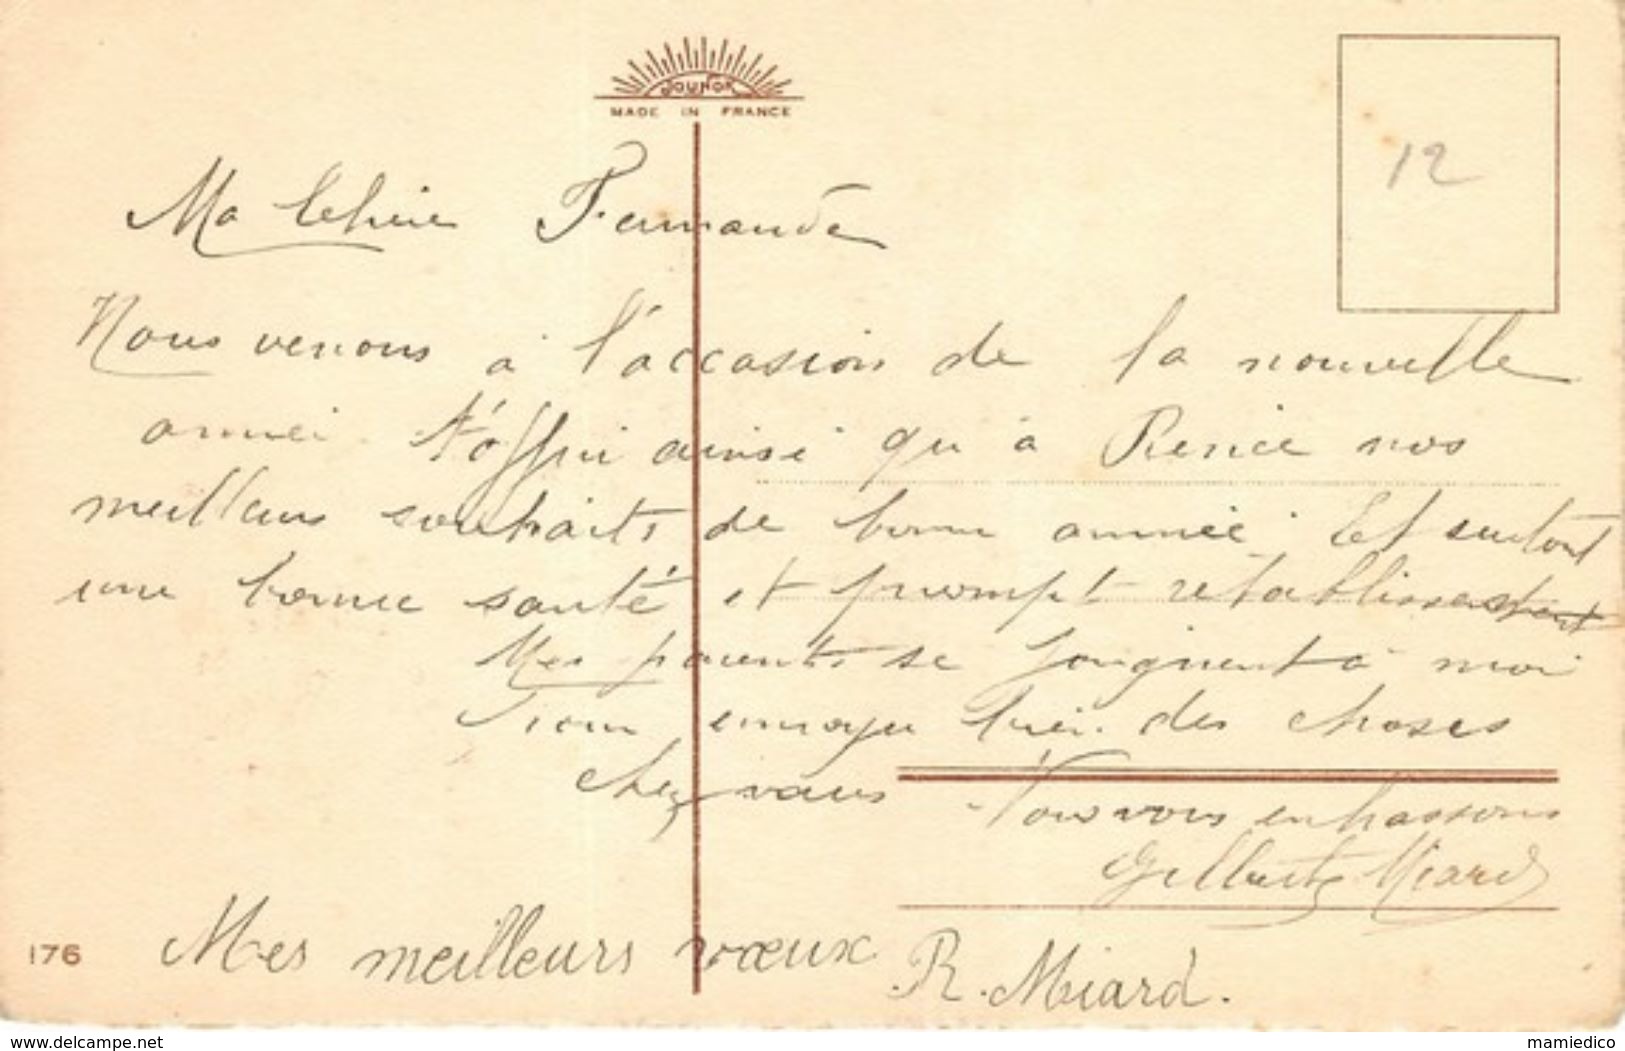 JOUNOK
MADE IN FRANCE
12
Ma Chère Fernande
Nous venons à l'occasion de la nouvelle
année t'offrir ainsi qu'à Renée nos
meilleurs souhaits de bonne année. Et surtout
une bonne santé et prompt rétablissement
Mes parents se joignent à moi
Pour envoyer bien des choses
chez vous
Nous vous embrassons
Gilberte Miard
Mes meilleurs vœux
R. Miard.
176
www.delcampe.net
mamiedico